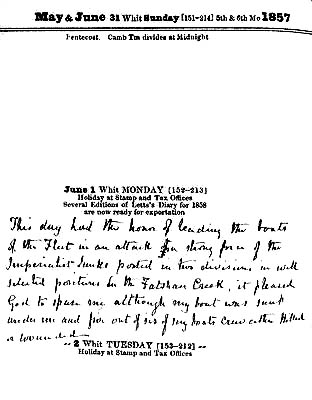 May & June 31 Whit Sunday [151-214] 5th & 6th Mo 1857
Pentecost. Camb Tm divides at Midnight
June 1 Whit MONDAY [152-213]
Holiday at Stamp and Tax Offices
Several Editions of Letts's Diary for 1858
are now ready for exportation
This day had the honor of leading the boats
of the Fleet in an attack strong force of the
Imperialist Junks posted in two divisions in well
selected positions in the Fatshan Creek, it pleased
God to spare me although my boat was sunk
under me and five out of six of my boats Crew either killed
or wounded
-- 2 Whit TUESDAY [153-212] --
Holiday at Stamp and Tax Offices